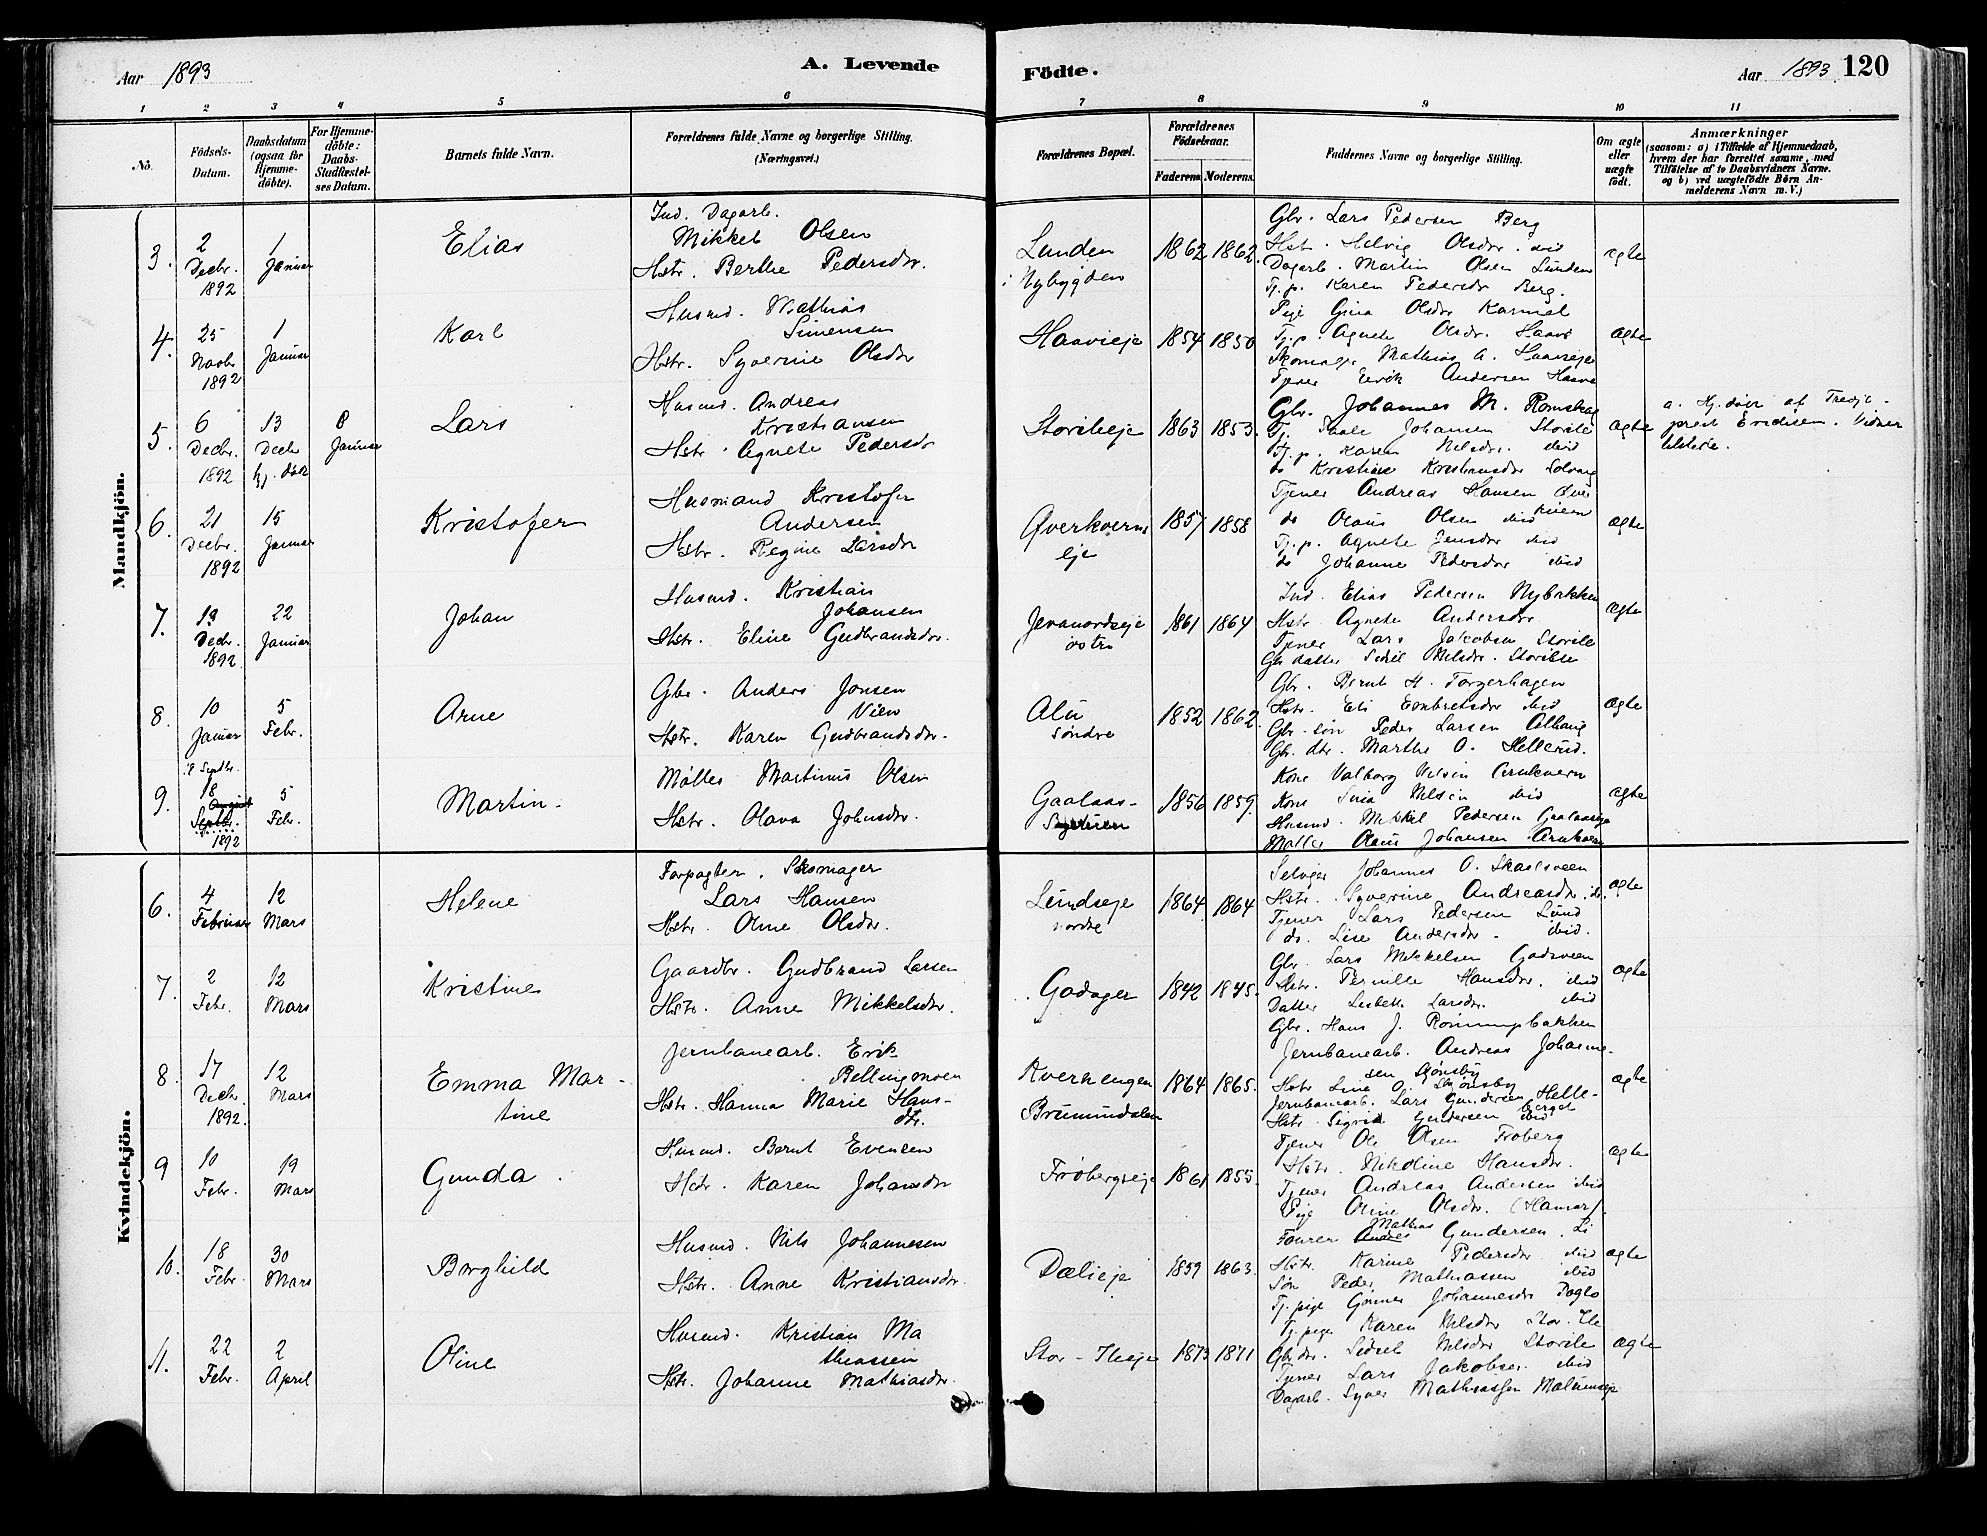 Aar 1893
A. Levende
Födte.
Aar 1893.
120
1 2 3 4 5 6 7 8 9 10 11
No.
Födsels-
Datum.
Daabsdatum
(ogsaa for
Hjemme-
döbte).
For Hjemme-
döbte:
Daabs-
Stadfæstel-
ses Datum.
Barnets fulde Navn.
Forældrenes fulde Navne og borgerlige Stilling.
(Næringsvei.)
Forældrenes Bopæl.
Forældrenes
Födselsaar.
Faderens. Moderens.
Faddernes Navne og borgerlige Stilling.
Om ægte
eller
uægte
födt.
Anmærkninger
(saasom: a) i Tilfælde af Hjemmedaab,
hvem der har forrettet samme, med
Tilföielse af to Daabsvidners Navne.
og b) ved uægtefödte Börn An-
melderens Navn m. V.)
Mandkjön.
3.
2
Decbr.
1892
1
Januar
Elias
Ind. Dagarb.
Mikkel Olsen
Hstr. Berthe Pedersdr.
Lunden
i Nybygden
1862 1862.
Gbr. Lars Pedersen Berg
Hstr. Helvig Olsdr. ibid
Dagarb. Martin Olsen Lunden
Tj.p. Karen Pedersdr Berg.
ægte
4.
25
Novbr.
1892
1
Januar
Karl
Husmd. Mathias
Simensen
Hstr. Syverine Olsdr
Haavieje
1854 1850
Pige Gina Olsdr Karmel
Tj.p. Agnete Olsdr. Haave
Skomager Mathias A. Haavieje
Tjener Erik Andersen Haave
ægte
5.
6
Decbr.
1892
13
Decbr
hj. døbt
8
Januar
Lars
Husmd. Andreas
Kristiansen
Hstr. Agnete Pedersdr
Storihleje
1863 1853.
Gbr. Johannes M. Romskag
Tj. Paale Johansen Storile
Tj.p. Karen Nilsdr. ibid
do Kristine Kristiansdr Solvang
ægte
a. Hj.døbt af Tredje-
prest Eriksen. Vidner
tilstede.
6.
21
Decbr.
1892
15
Januar
Kristofer
Husmand Kristofer
Andersen
Hstr. Regine Larsdr
Øverkverns
eje
1857 1858
Tjener Andreas Hansen Øver
kvern
do Olaus Olsen ibid
Tj.p. Agnete Jensdr ibid
do Johanne Pedersdr ibid
ægte
7.
19
Decbr.
1892
22
Januar
Johan
Husmd. Kristian
Johansen
Hstr. Eline Gudbrandsdr.
Jevanordseje
østre
1861 1864
Ind. Elias Pedersen Nybakken
Hstr. Agnete Andersdr
Tjener Lars Jakobsen Storile
Gbr datter Sidsil Nilsdr. Storihle
ægte
8.
10
Januar
5
Febr.
Arne
Gbr. Anders Jonsen
Vien
Hstr. Karen Gudbrandsdr.
Alu
søndre
1852 1862.
Gbr. Bernt H. Torgerhagen
Hstr. Eli Embretsdr ibid
Gbr. søn Peder Larsen Alhaug
Gbr. dtr. Marthe O. Hellerud.
ægte
9.
18 Septbr.
18
August
Septbr.
1892
5
Febr.
Martin.
Møller Martinus Olsen
Hstr. Olava Johnsdr.
Gaalaas-
1856 1859.
Kone Valborg Nilsen Arnkvern
Kone Lina Nilsen ibid
Husmd. Mikkel Pedersen Gaalaaseje
Møller Olaus Johansen Arnkvern
ægte
Kvindekjön.
6.
4
Februar
12
Mars
Helene
Forpagter, Skomager
Lars Hansen
Hstr. Olme Olsdr.
Lundseje
nordre
1864 1864
Selvejer Johannes O. Skaslsveen
Hstr. Syverine Andreasdr. ib.
Tjener Lars Pedersen Lund
do. Lise Andersdr. ibid.
ægte
7.
2
Febr.
12
Mars
Kristine
Gaardbr. Gudbrand Larsen
Hstr. Anne Mikkelsdr.
Godager
1842 1845.
Gbr. Lars Mikkelsen Godsveen
Hstr. Pernille Hansdr. ibid
Datter Lisbeth Larsdr. ibid
Gbr. Hans J. Rømmenbakken
ægte
8.
17
Decbr.
1892.
12
Mars
Emma Mar-
tine
Jernbanearb. Erik
Bellingmoen
Hstr. Hanna Marie Hans-
dtr.
Kverkengen
Brumunddalen
1864 1865.
Jernbanearb. Andreas Johanne-
sen Sjønsby
Hstr. Lina O. Sjønsby
Jernbanearb. Lars Gundersen Helle-
berget
Hstr. Sigrid Gundersen ibid
ægte
9
10
Febr.
19
Mars
Gunda.
Husmd. Bernt Evensen
Hstr. Karen Johansdr
Frøbergseje
1861 1855.
Tjener Ole Olsen Frøberg
Hstr. Nikoline Hansdr.
Tjener Andreas Andersen ibid
Pige Oline Olsdr. (Hamar).
ægte
10.
18
Febr.
30
Mars
Borghild
Husmd. Nils Johannesen
Hstr. Anne Kristiansdr.
Dælieje
1859 1863.
Mathias
Fourer Andres Gundersen. Li
Hstr. Karine Pedersdr ibid
Søn Peder Mathiassen ibid
Tj.pige Gunner Johannesdr Doglo
ægte
11.
22
Febr.
2
April
Oline
Husmd. Kristian Ma
thiassen
Hstr. Johanne Mathiasdr.
Stor-Ileeje
1873 1871
Tj.pige Karen Nilsdr Stor-Ile
Gbr.dr. Sidsel Nilsdr Storile
Tjener Lars Jakobsen ibid
Dagarb. Syver Mathiassen Mælumseje
ægte